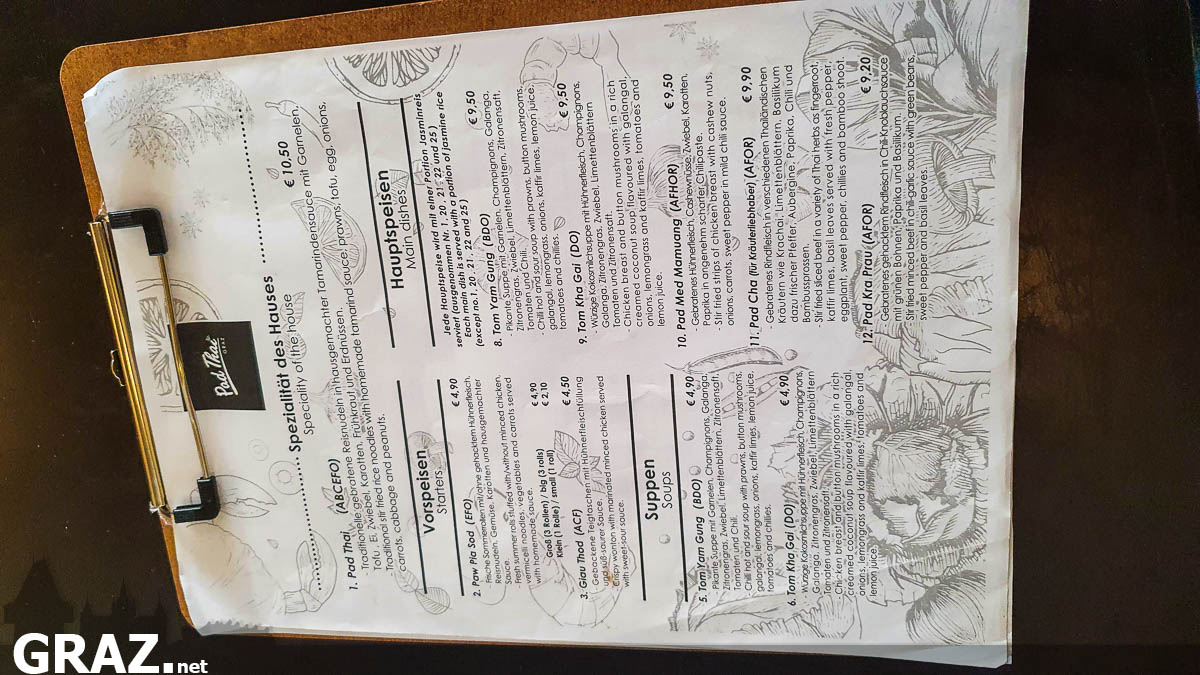 Pad Thai
GRAZ
Spezialität des Hauses
Speciality of the house
1. Pad Thai (ABCEFO) € 10,50
- Traditionelle gebratene Reisnudeln in hausgemachter Tamarindensauce mit Garnelen,
Tofu, Ei, Zwiebel, Karotten, Frühkraut und Erdnüssen.
- Traditional stir fried rice noodles with homemade tamarind sauce, prawns, tofu, egg, onions,
carrots, cabbage and peanuts.
Vorspeisen
Starters
2. Paw Pia Sod (EFO) € 4,90
- Frische Sommerrollen mit/ohne gehacktem Hühnerfleisch,
Reisnudeln, Gemüse, Karotten und hausgemachter
Sauce.
- Fresh summer rolls stuffed with/without minced chicken,
vermicelli noodles, vegetables and carrots served
with homemade sauce.
Groß (3 Rollen) / big (3 rolls) € 4,90
Klein (1 Rolle) / small (1 roll) € 2,10
3. Giau Thod (ACF) € 4,50
- Gebackene Teigtaschen mit Hühnerfleischfüllung
und süß-saurer Sauce.
- Crispy wonton with marinated minced chicken served
with sweet-sour sauce.
Suppen
Soups
5. Tom Yam Gung (BDO) € 4,90
- Pikante Suppe mit Garnelen, Champignons, Galanga,
Zitronengras, Zwiebel, Limettenblättern, Zitronensaft,
Tomaten und Chili.
- Chili hot and sour soup with prawns, button mushrooms,
galangal, lemongrass, onions, kaffir limes, lemon juice,
tomatoes and chillies.
6. Tom Kha Gai (DO) € 4,90
- Würzige Kokosmilchsuppe mit Hühnerfleisch, Champignons,
Galanga, Zitronengras, Zwiebel, Limettenblättern
Tomaten und Zitronensaft.
- Chicken breast and button mushrooms in a rich
creamed coconut soup flavoured with galangal,
onions, lemongrass and kaffir limes, tomatoes and
lemon juice.
Hauptspeisen
Main dishes
Jede Hauptspeise wird mit einer Portion Jasminreis
serviert (ausgenommen Nr. 1, 20, 21, 22 und 25)
Each main dish is served with a portion of jasmine rice
(except no.1, 20, 21, 22 and 25)
8. Tom Yam Gung (BDO) € 9,50
- Pikante Suppe mit Garnelen, Champignons, Galanga,
Zitronengras, Zwiebel, Limettenblättern, Zitronensaft,
Tomaten und Chili.
- Chili hot and sour soup with prawns, button mushrooms,
galangal, lemongrass, onions, kaffir limes, lemon juice,
tomatoes and chillies.
9. Tom Kha Gai (DO) € 9,50
- Würzige Kokosmilchsuppe mit Hühnerfleisch, Champignons,
Galanga, Zitronengras, Zwiebel, Limettenblättern
Tomaten und Zitronensaft.
- Chicken breast and button mushrooms in a rich
creamed coconut soup flavoured with galangal,
onions, lemongrass and kaffir limes, tomatoes and
lemon juice.
10. Pad Med Mamuang (AFHOR) € 9,50
- Gebratenes Hühnerfleisch, Cashewnüsse, Zwiebel, Karotten,
Paprika in angenehm scharfer Chilipaste.
- Stir fried strips of chicken breast with cashew nuts,
onions, carrots, sweet pepper in mild chili sauce.
11. Pad Cha (für Kräuterliebhaber) (AFOR) € 9,90
- Gebratenes Rindfleisch in verschiedenen Thailändischen
Kräutern wie Krachai, Limettenblättern, Basilikum
dazu frischer Pfeffer, Aubergine, Paprika, Chili und
Bambussprossen.
- Stir fried sliced beef in a variety of Thai herbs as fingerroot,
kaffir limes, basil leaves served with fresh pepper,
eggplant, sweet pepper, chillies and bamboo shoot.
12. Pad Kra Prau (AFOR) € 9,20
- Gebratenes gehacktes Rindfleisch in Chili-Knoblauchsauce
mit grünen Bohnen, Paprika und Basilikum.
- Stir fried minced beef in chili-garlic sauce with green beans,
sweet pepper and basil leaves.
GRAZ.net